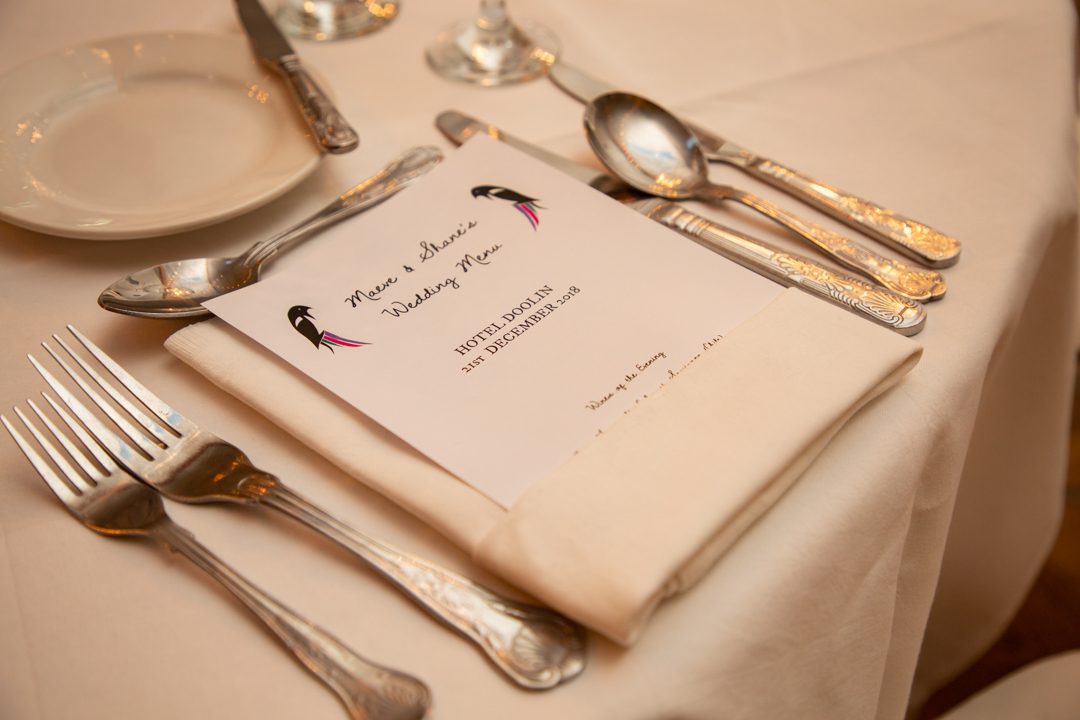 Maeve & Shane's
Wedding Menu
HOTEL DOOLIN
21ST DECEMBER 2018
Wines of the Evening